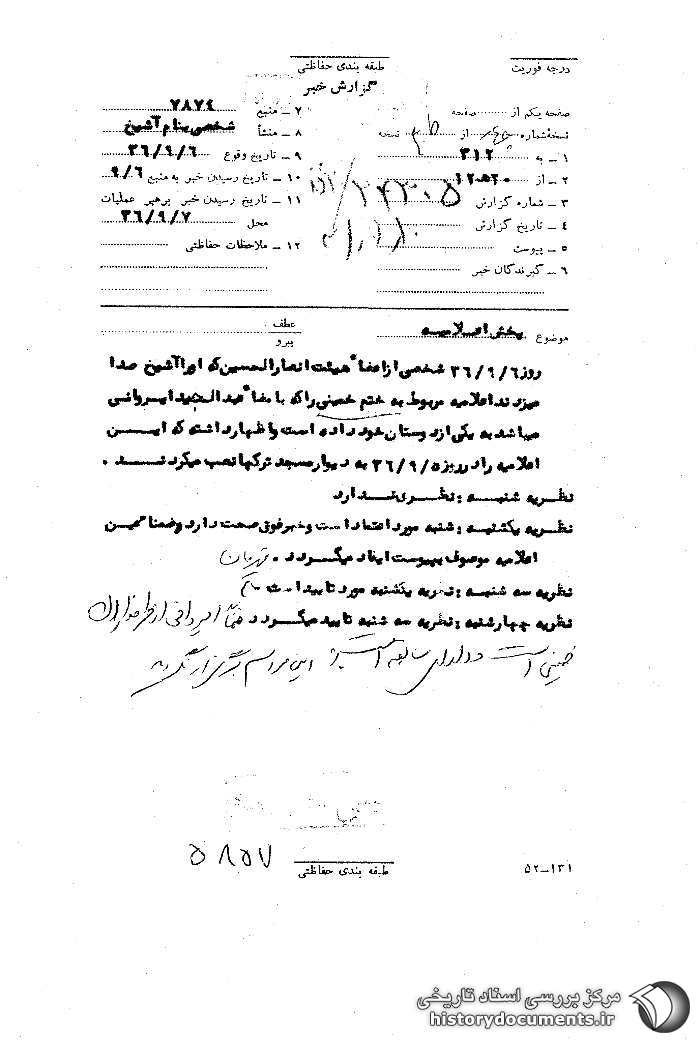 درجه فوریت
طبقه بندی حفاظتی
گزارش خبر
صفحه یکم از صفحه
نسخه شماره چهار از نسخه
۱ – به ۳۱۲
۲ – از ۱۲ه۲۰
۳ – شماره گزارش ۲۴۳۰۵
۴ – تاریخ گزارش
۵ – پیوست
۶ – گیرندگان خبر
۷ – منبع ۷۸۷۴
۸ – منشأ شخصی بنام آشیخ
۹ – تاریخ وقوع ۳۶/۹/۶
۱۰ – تاریخ رسیدن خبر به منبع ۹/۶
۱۱ – تاریخ رسیدن خبر برهبر عملیات
محل ۳۶/۹/۷
۱۲ – ملاحظات حفاظتی
موضوع پخش اعلامیه
عطف :
پیرو
روز ۳۶/۹/۶ شخصی از اعضاء هیئت انصارالحسین که او را آشیخ صدا
میزدند اعلامیه مربوط به ختم خمینی را که با مضاء عبدالمجید ایروانی
میباشد به یکی از دوستان خود داده است و اظهار داشته که ایــن
اعلامیه را در روز ۳۶/۹/۵ به دیوار مسجد ترکها نصب میکردنــد .
نظریه شنبــه : نظــری نــدارد
نظریه یکشنبه : شنبه مورد اعتماد است و خبر فوق صحت دارد و ضمنا عین
اعلامیه موصوف بپیوست ایفاد میگــردد . قهرمان
نظریه سه شنبه : نظریه یکشنبه مورد تایید است
نظریه چهارشنبه : نظریه سه شنبه تایید میگردد ضمنا ایروانی از طرفداران
خمینی است و دارای سابقه است این مراسم برگزار نگردید
۵۸۵۷
طبقه بندی حفاظتی
۵۲–۱۳۱
مرکز بررسی اسناد تاریخی
historydocuments.ir